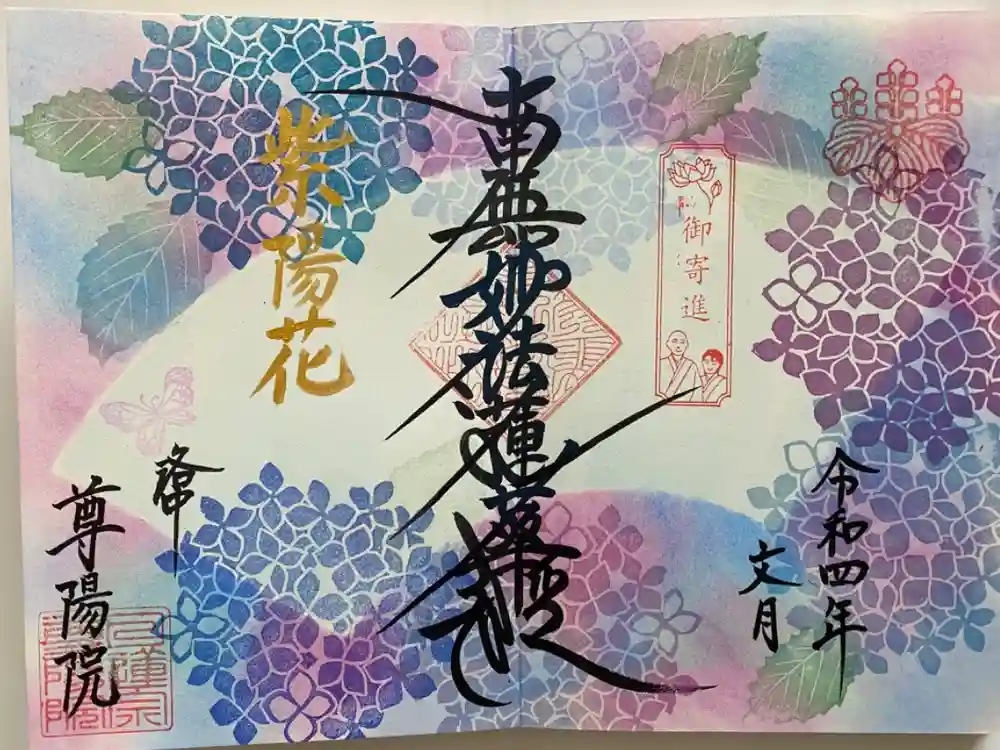 令和四年
文月
御寄進
南無妙法蓮華経
紫陽花
洛中
尊陽院